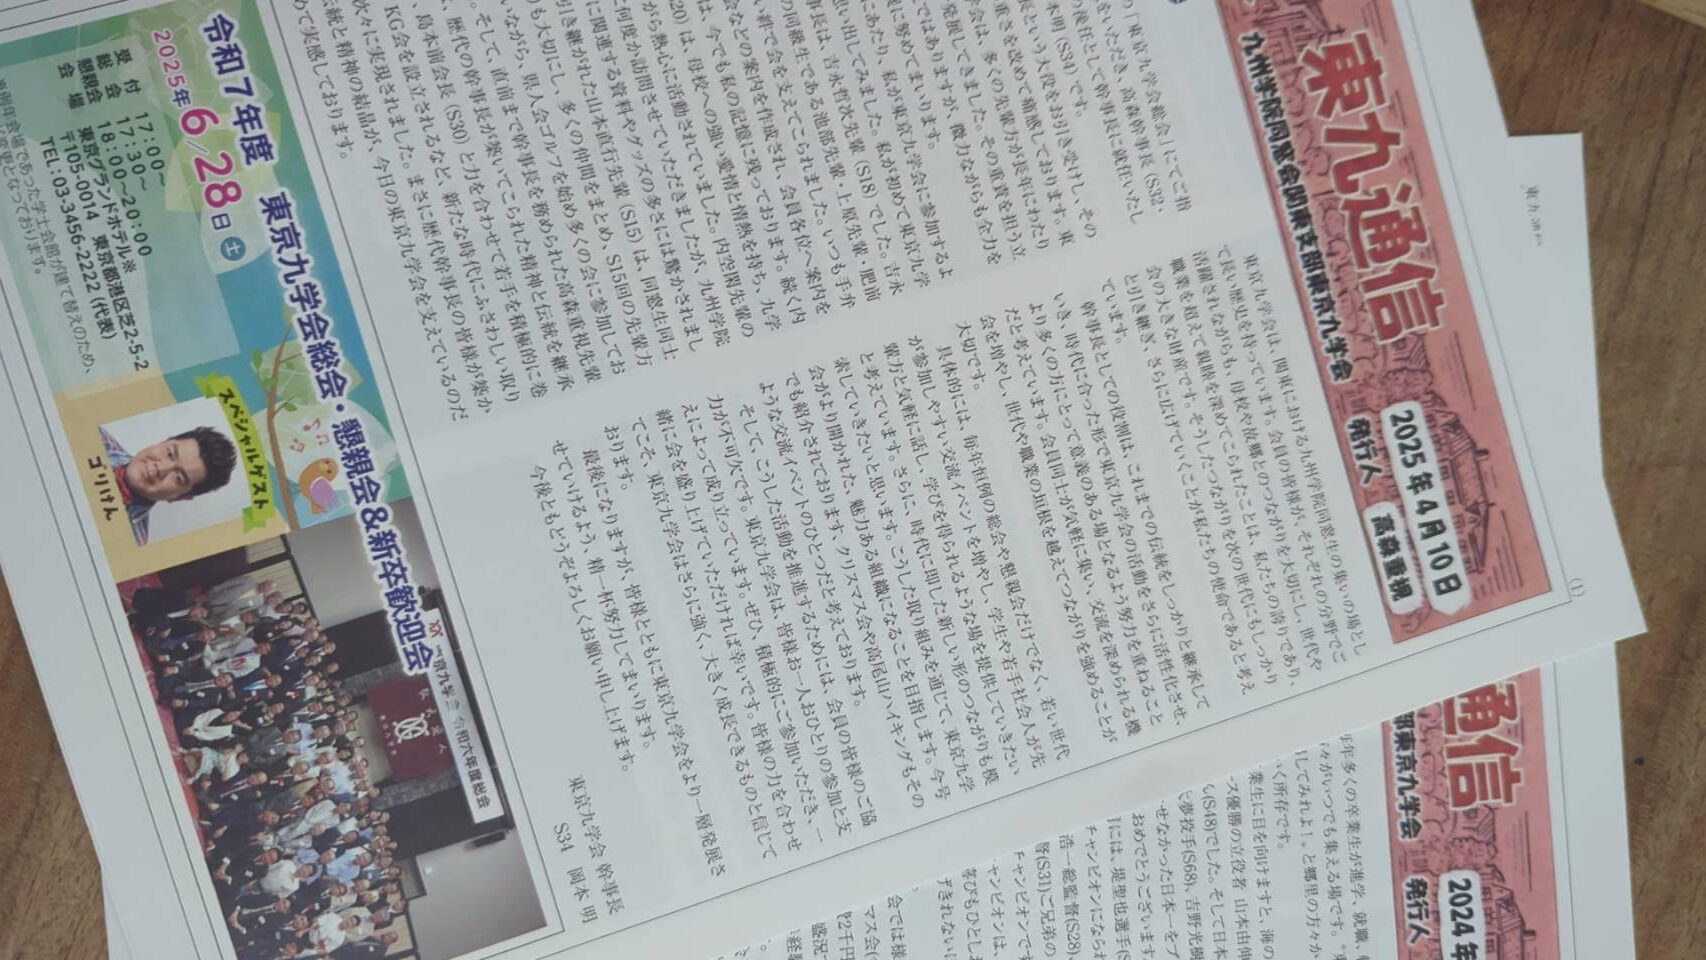 東九通信
九州学院同窓会関東支部東京九学会
2025年4月10日
発行人 高森重視
(1)
の「東京九学会総会」にてご指
をいただき、高森幹事長(S32・
の後任として幹事長に就任いたし
木明(S34)です。
長という大役をお引き受けし、その
重さを改めて痛感しております。東
学会は、多くの先輩方が長年にわたり
発展してきました。その重責を担う立
ではありますが、微力ながらも全力を
に努めてまいります。
にあたり、私が東京九学会に参加するよ
思い出してみました。私が初めて東京九学
事長は、吉永哲次先輩(S18)でした。吉永
の同級生である池部先輩・上原先輩・肥前
い絆で会を支えてこられました。いつも手弁
会などの案内を作成され、会員各位へ案内を
は、今でも私の記憶に残っております。続く内
20)は、母校への強い愛情と情熱を持ち、九学
がら熱心に活動されていました。内空閑先輩の
に何度か訪問させていただきましたが、九州学院
に関連する資料やグッズの多さには驚かされまし
引き継がれた山本直行先輩(S15)は、同窓生同士
も大切にし、多くの仲間をまとめ、S15回の先輩方
いながら、県人会ゴルフを始め多くの会に参加してお
。そして、直前まで幹事長を務められた高森重視先輩
、歴代の幹事長が築いてこられた精神と伝統を継承
、島本前会長(S30)と力を合わせて若手を積極的に巻
KG会を設立されるなど、新たな時代にふさわしい取り
次々に実現されました。まさに歴代幹事長の皆様が築か
伝統と精神の結晶が、今日の東京九学会を支えているのだ
めて実感しております。
東京九学会は、関東における九州学院同窓生の集いの場とし
て長い歴史を持っています。会員の皆様が、それぞれの分野でご
活躍されながらも、母校や故郷とのつながりを大切にし、世代や
職業を超えて親睦を深めてこられたことは、私たちの誇りであり、
会の大きな財産です。そうしたつながりを次の世代にもしっかり
と引き継ぎ、さらに広げていくことが私たちの使命であると考え
ています。
幹事長としての役割は、これまでの伝統をしっかりと継承して
いき、時代に合った形で東京九学会の活動をさらに活性化させ、
より多くの方にとって意義のある場となるよう努力を重ねること
だと考えています。会員同士が気軽に集い、交流を深められる機
会を増やし、世代や職業の垣根を越えてつながりを強めることが
大切です。
具体的には、毎年恒例の総会や懇親会だけでなく、若い世代
が参加しやすい交流イベントを増やし、学生や若手社会人が先
輩方と気軽に話し、学びを得られるような場を提供していきたい
と考えています。さらに、時代に即した新しい形のつながりも模
索していきたいと思います。こうした取り組みを通じて、東京九学
会がより開かれた、魅力ある組織になることを目指します。今号
でも紹介されております、クリスマス会や高尾山ハイキングもその
ような交流イベントのひとつだと考えております。
そして、こうした活動を推進するためには、会員の皆様のご協
力が不可欠です。東京九学会は、皆様お一人おひとりの参加と支
えによって成り立っています。ぜひ、積極的にご参加いただき、一
緒に会を盛り上げていただければ幸いです。皆様の力を合わせ
てこそ、東京九学会はさらに強く、大きく成長できるものと信じて
おります。
最後になりますが、皆様とともに東京九学会をより一層発展さ
せていけるよう、精一杯努力してまいります。
今後ともどうぞよろしくお願い申し上げます。
東京九学会 幹事長
S34 岡本 明
令和7年度 東京九学会総会・懇親会&新卒歓迎会
2025年6/28日土
受付 17:00~
総会 17:30~
懇親会 18:00~20:00
会場 東京グランドホテル※
〒105-0014 東京都港区芝2-5-2
TEL:03-3456-2222(代表)
※例年会場であった学士会館が建て替えのため、
変更となっております。
スペシャルゲスト
ゴリけん
令和六年度総会
通信
部東京九学会
2024年
発行人
年多くの卒業生が進学、就職、
々がいつでも集える場です。“東
してみれよ!”と郷里の方々か
く所存です。
業生に目を向けますと、海の
ース優勝の立役者 山本由伸
(S48)でした。そして日本
夢投手(S68)、吉野光樹
せなかった日本一をプ
おめでとうございます。
には、堤聖也選手(S
チャンピオンになられ
浩一総監督(S28)、
督(S31)ご兄弟の
チャンピオンです
ャンピオンは、
喜びもひとしお
ぎきれない
会では様
マス会(
2千円
盛況